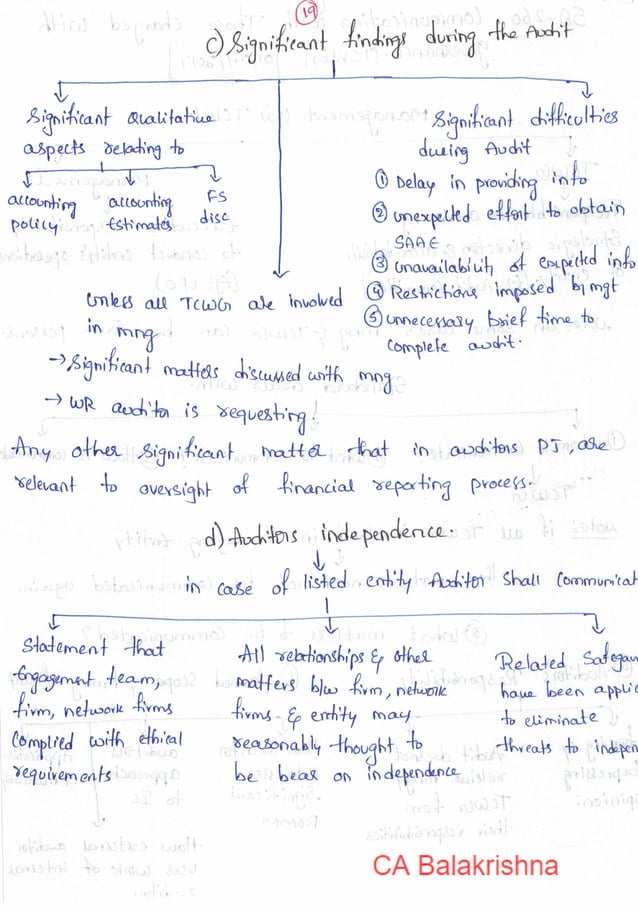 19
c) Significant findings during the Audit
Significant Qualitative
aspects relating to
accounting
policy
accounting
Estimates
FS
disc
Significant difficulties
during Audit
① Delay in providing info
② unexpected effort to obtain
SAAE
③ Unavailability of expected info
④ Restrictions imposed by mgt
⑤ unnecessary brief time to
complete audit.
Unless all TCWG are involved
in mng
→ Significant matters discussed with mng
→ WR auditor is requesting!
Any other significant matter that in auditors PJ, are
relevant to oversight of financial reporting process.
d) Auditors independence.
in case of listed entity Auditor shall Communicat
Statement that
Engagement team,
firm, network firms
Complied with ethical
requirements
All relationships & other
matters b/w firm, network
firms & entity may
reasonably thought to
be bear on independence
Related Safegau
have been applie
to eliminate
threats to indepen
CA Balakrishna